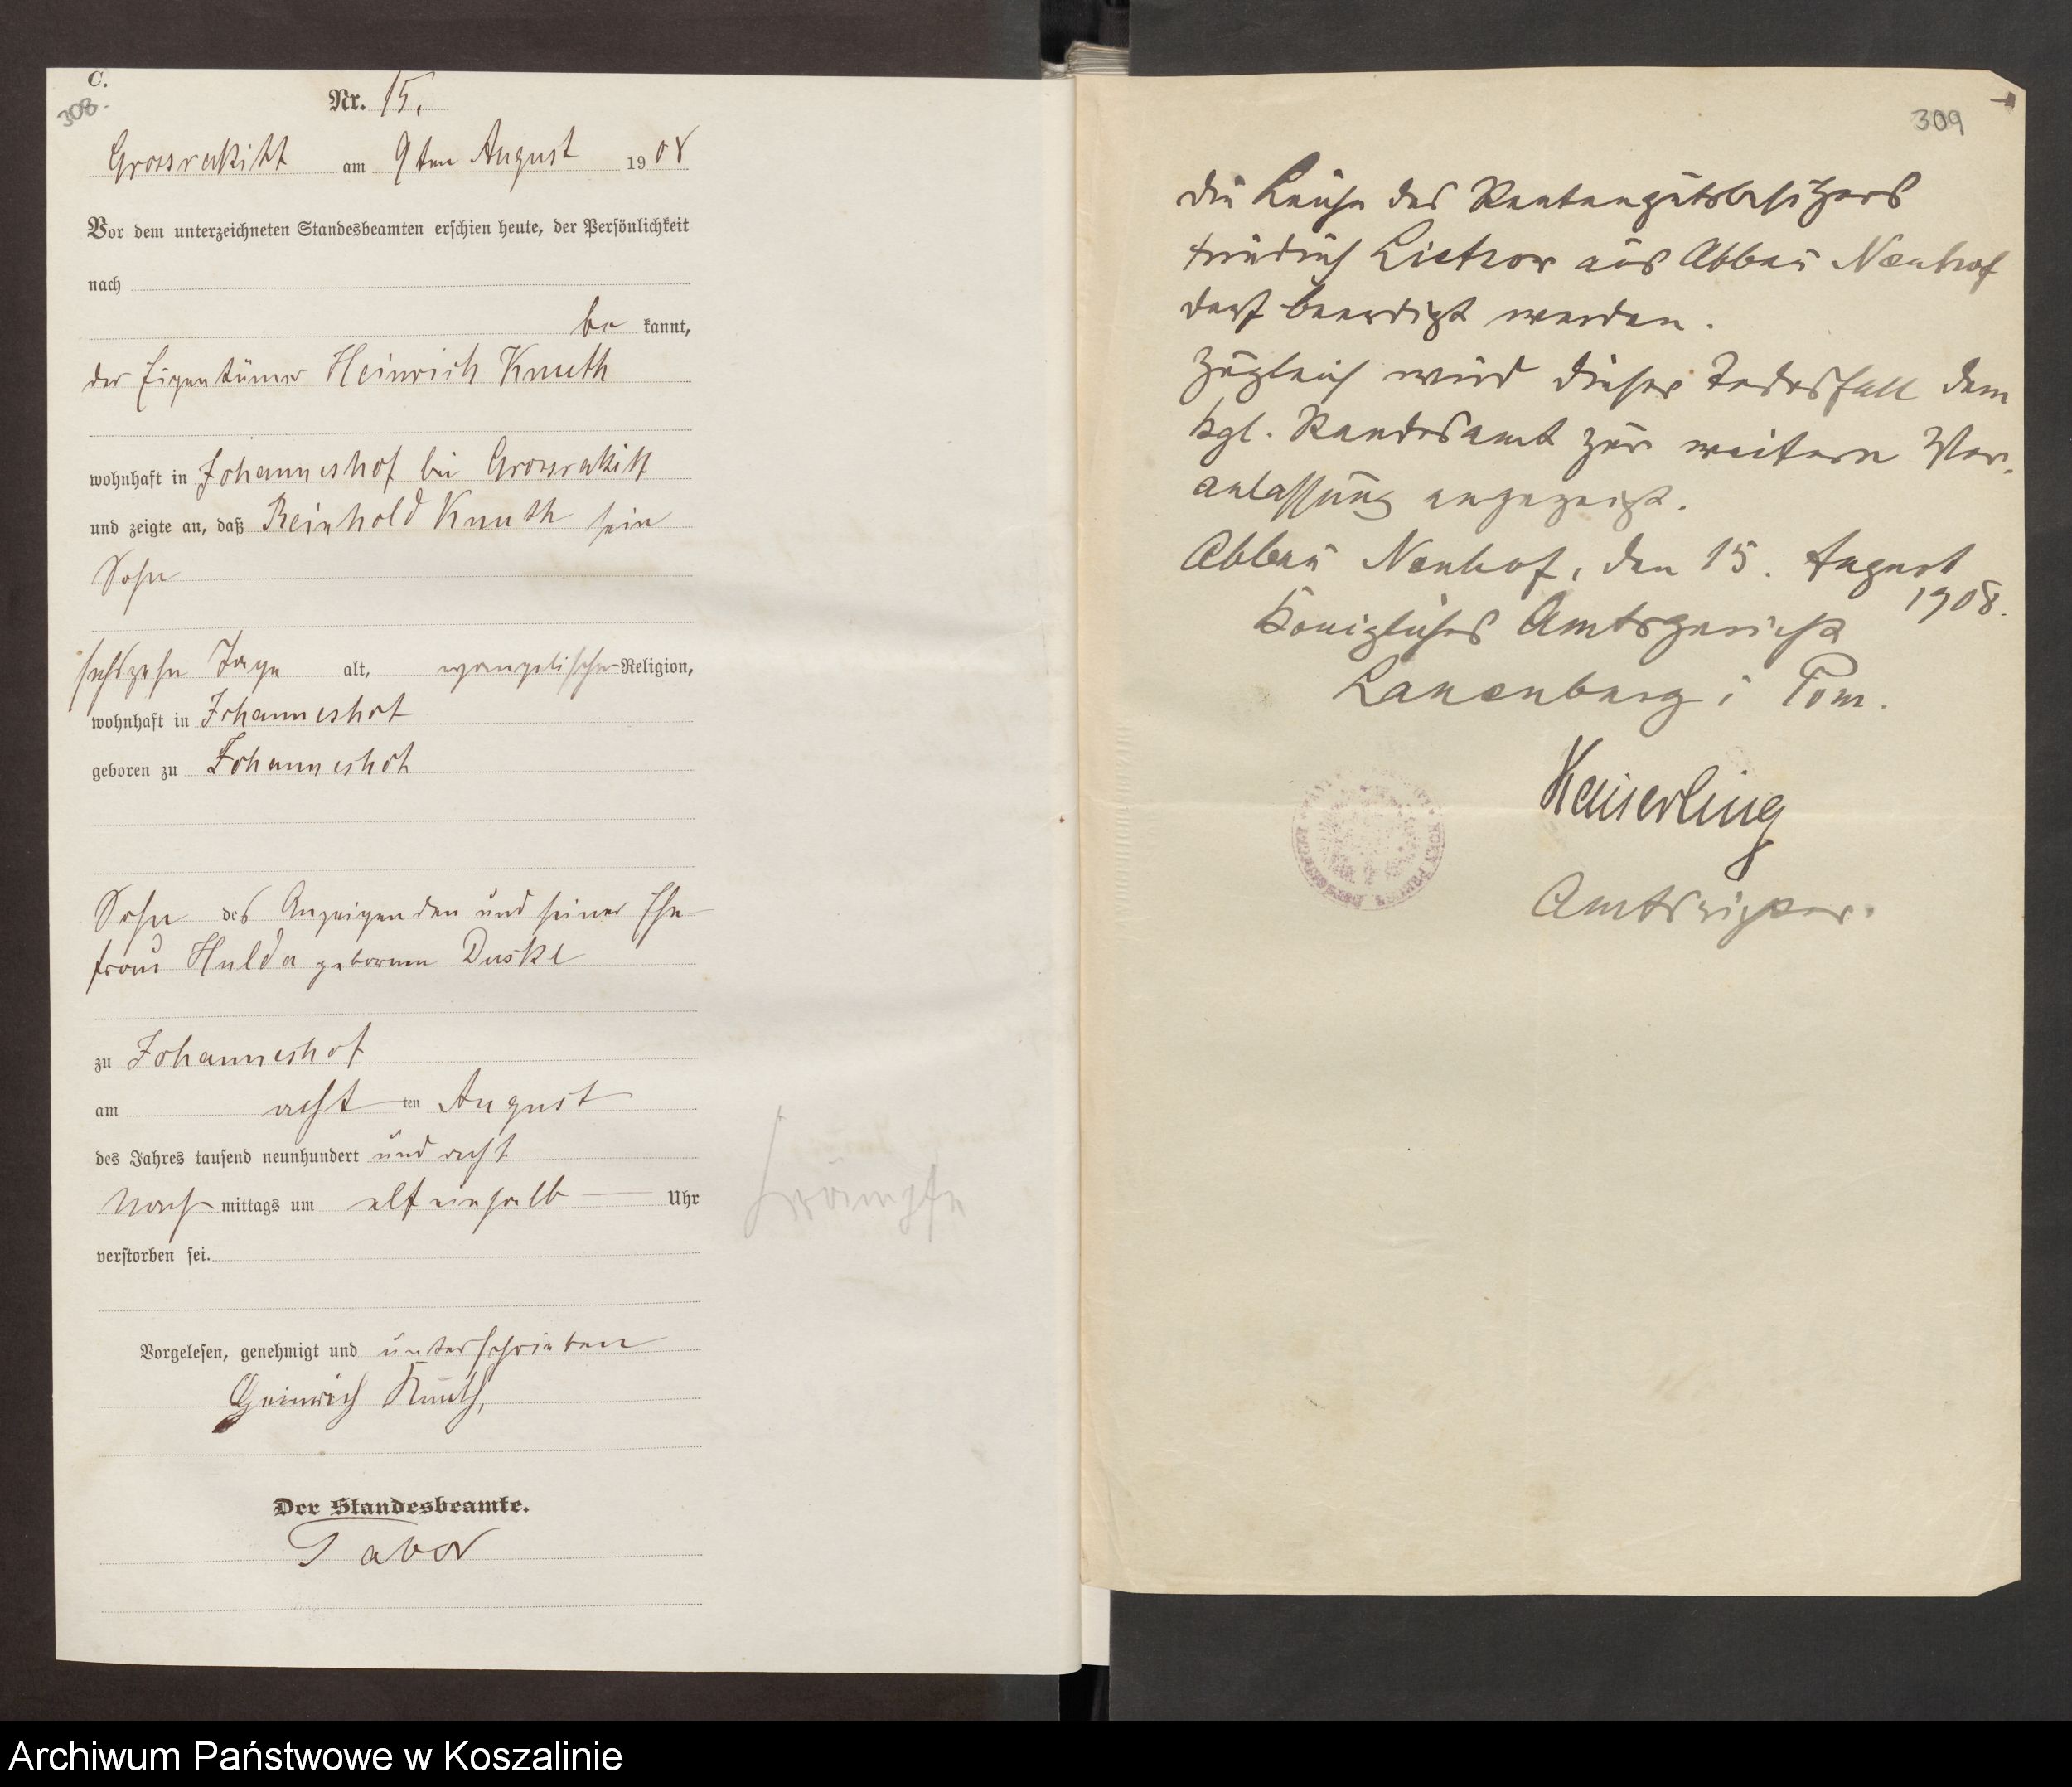 C.
308.
Nr. 15.
Grossrakitt am 9ten August 1908
Vor dem unterzeichneten Standesbeamten erschien heute, der Persönlichkeit
nach
be kannt,
der Eigentümer Heinrich Knuth
wohnhaft in Johanneshof bei Grossrakitt
und zeigte an, daß Reinhold Knuth sein
Sohn
sechszehn Tage alt, evangelischer Religion,
wohnhaft in Johanneshof
geboren zu Johanneshof
Sohn des Anzeigenden und seiner Ehe-
frau Hulda geborenen Duske
zu Johanneshof
am acht ten August
des Jahres tausend neunhundert und acht
Nach mittags um elfeinhalb Uhr
verstorben sei.
Krämpfe
Vorgelesen, genehmigt und unterschrieben
Heinrich Knuth,
Der Standesbeamte.
Tabor
309
Die Leiche des Rentengutsbesitzers
Friedrich Lietzow aus Abbau Neuhof
darf beerdigt werden.
Zugleich wird dieser Todesfall dem
Kgl. Standesamt zur weitern Ver-
anlassung angezeigt.
Abbau Neuhof, den 15. August
1908.
Königliches Amtsgericht
Lauenburg i Pom.
Keiserling
Amtsrichter.
Archiwum Państwowe w Koszalinie